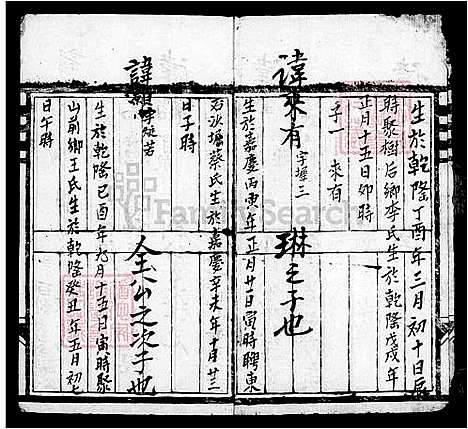 生於乾隆丁酉年三月初十日辰
時聚樹后鄉李氏生於乾隆戊戌年
正月十五日卯時
子一 來有
諱來有 字墀三 琳之子也
生於嘉慶丙寅年正月廿一日寅時聘東
沙堀蔡氏生於嘉慶辛未年十月廿三
日子時
諱顯 廷若 全公之次子也
生於乾隆己酉年九月十五日寅時聚
山前鄉王氏生於乾隆癸丑年五月初七
日午時
FamilySearch